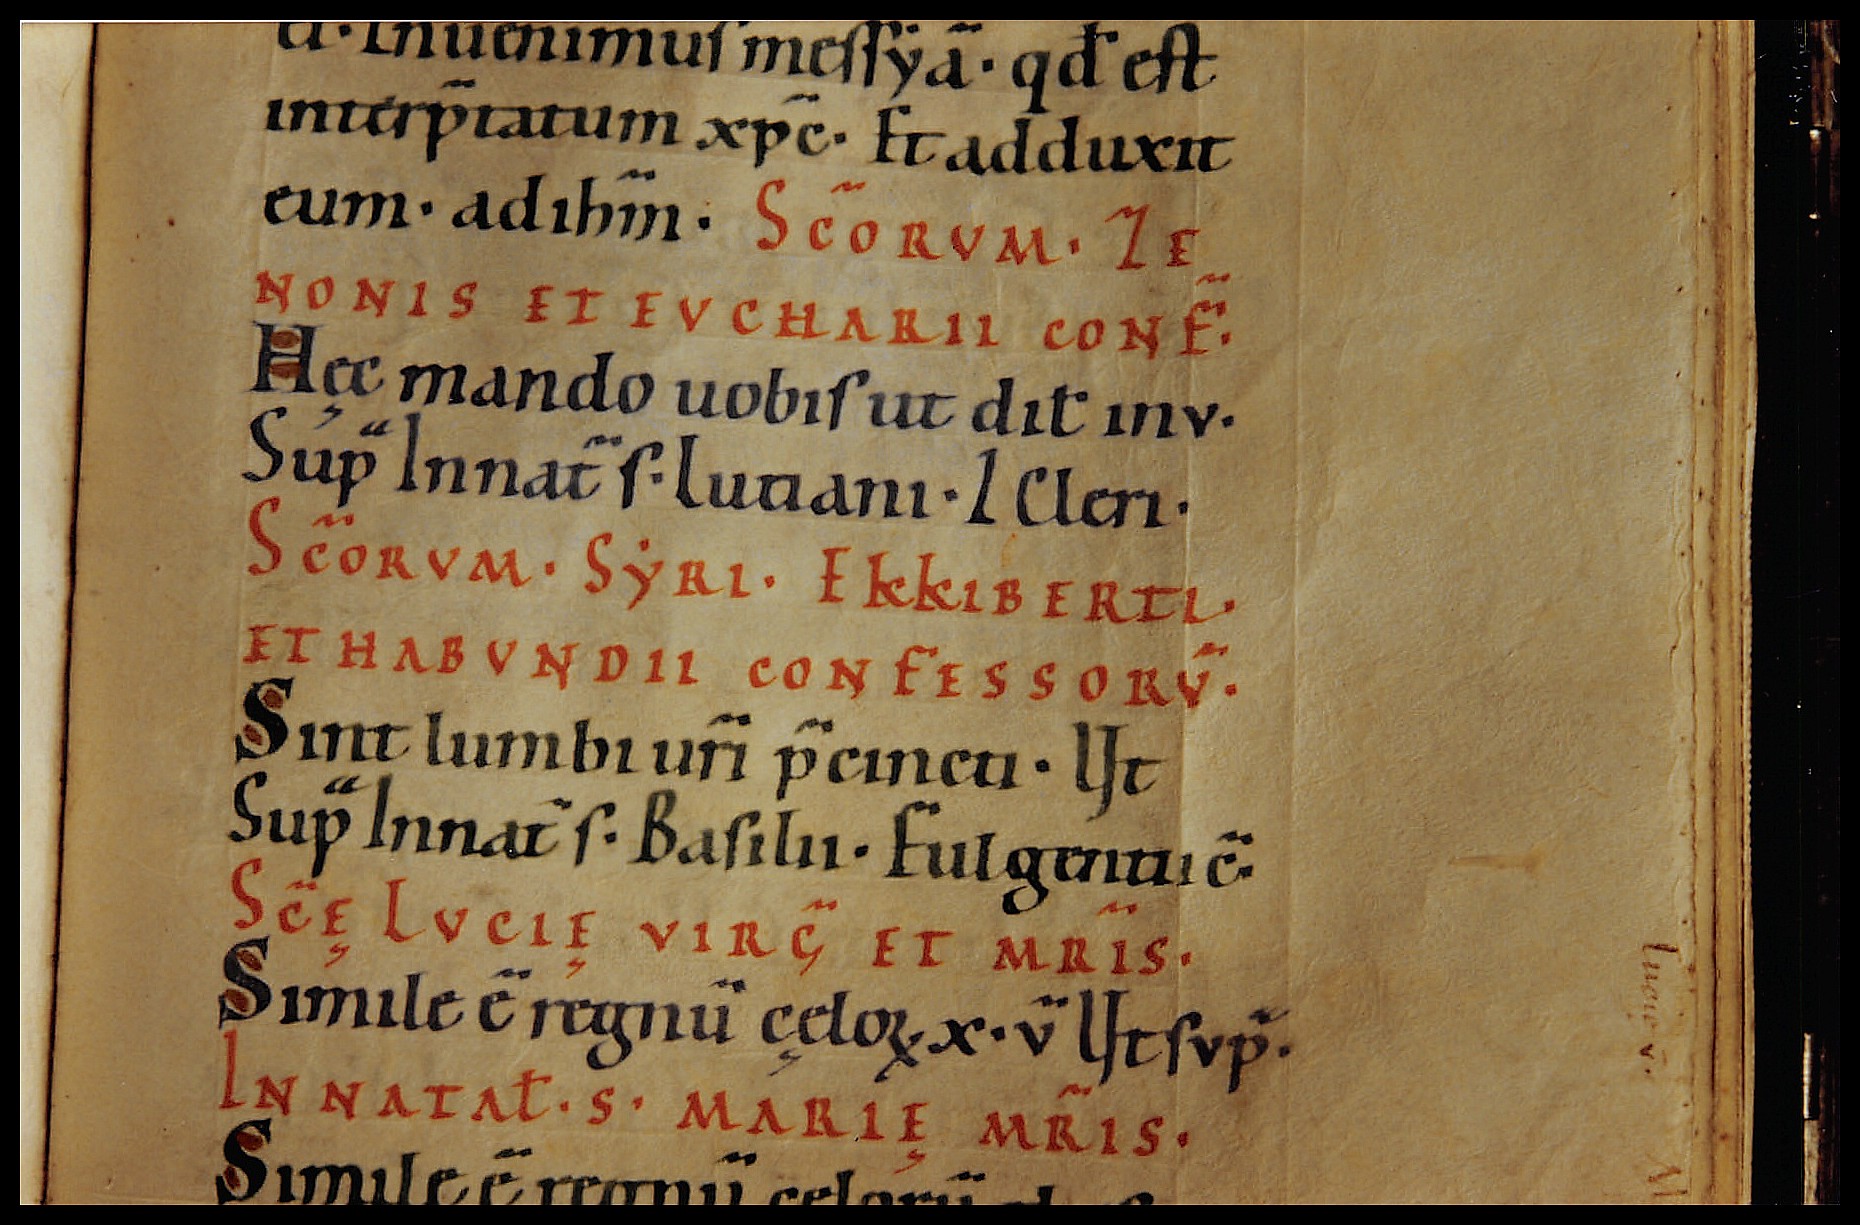 a· Inuenimus messÿā· qđ est
interp̄tatum xp̄c· Et adduxit
eum· ad ihm̄· SC̄ORVM· ZE
NONIS ET EVCHARII CONF̄·
Hęc mando uobis ut dit inv·
Sup̄ In nat̄ s· Lutiani· l Cleri·
SC̄ORVM· SẎRI· EKKIBERTI·
ET HABVNDII CONFESSORV̄·
Sint lumbi ur̄i p̄cincti·
Sup̄ In nat̄ s· Basilii· Fulgentii c̄·
SC̄Ę LVCIĘ VIRḠ ET MR̄IS·
Simile ē regnū cęloꝝ x· v̄ svp̄·
IN NATAT· S· MARIĘ MR̄IS·
Simile ē regnū celorū
Lucię v·